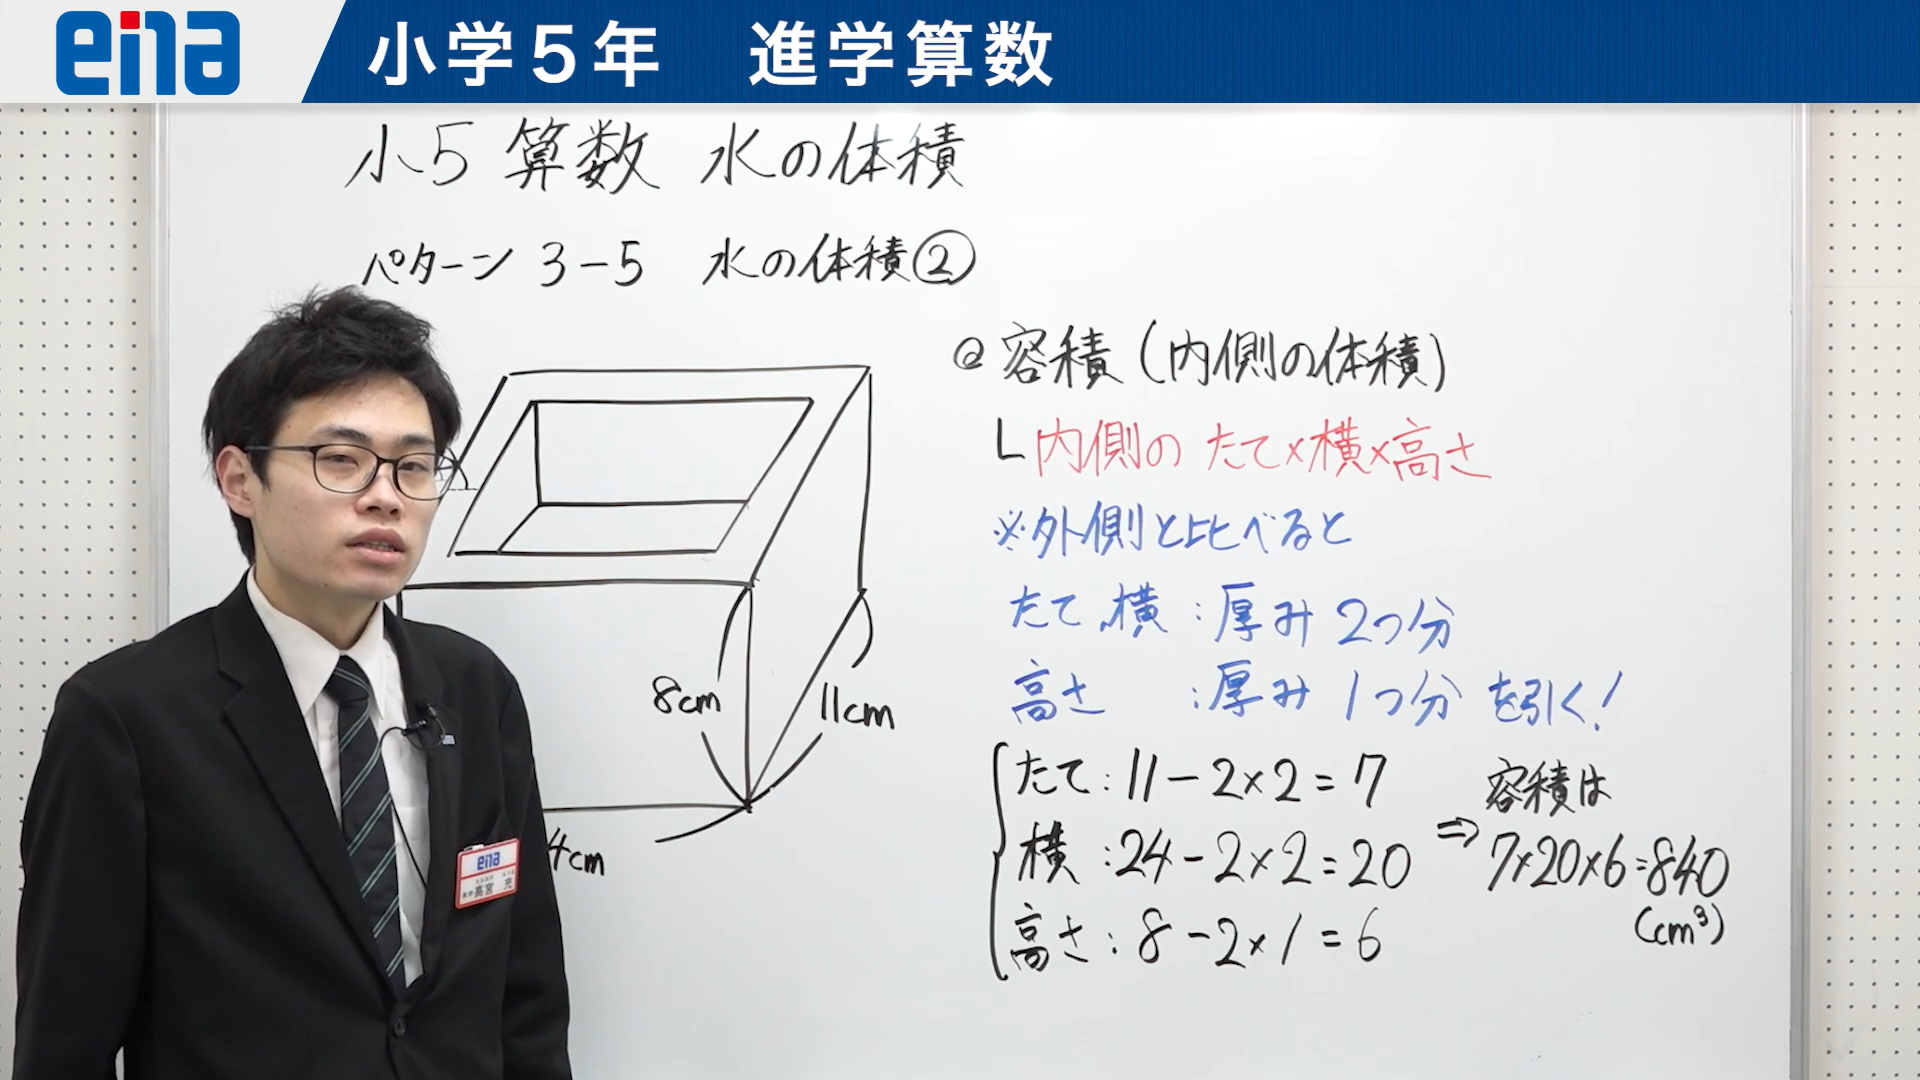 ena 小学5年 進学算数
小5 算数 水の体積
パターン 3-5 水の体積②
容積(内側の体積)
内側の たて×横×高さ
※外側と比べると
たて、横:厚み 2つ分
高さ :厚み 1つ分 を引く!
8cm
11cm
4cm
たて:11-2×2=7
横:24-2×2=20
高さ:8-2×1=6
容積は
⇒ 7×20×6=840
(cm³)
ena
高宮 充